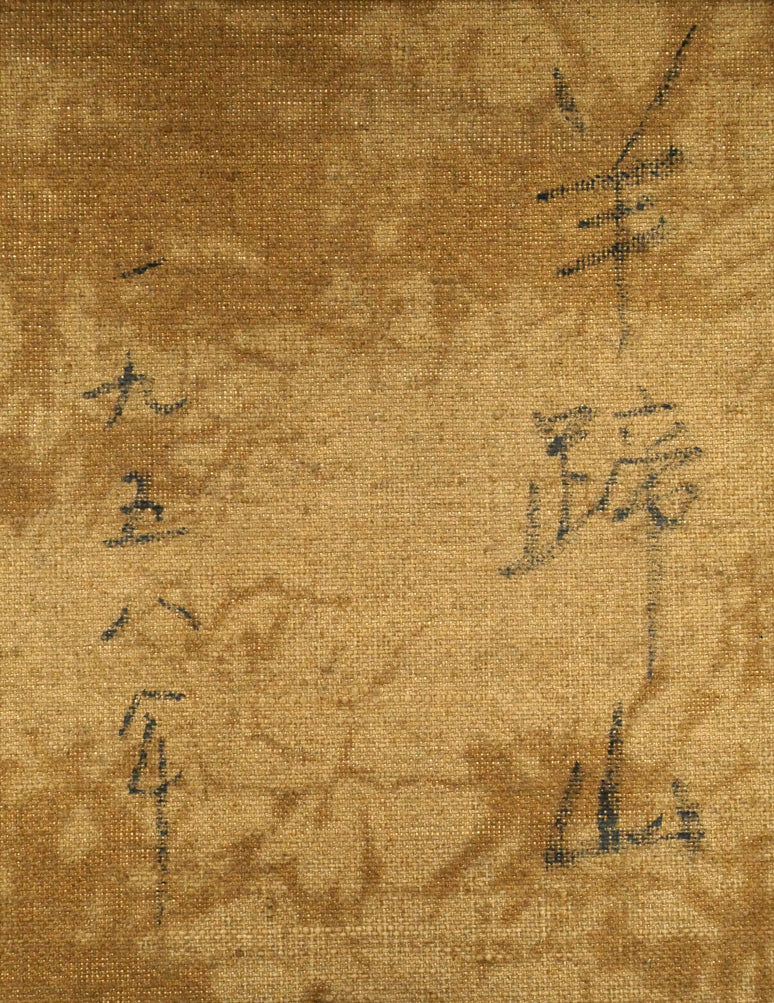 羊蹄山
一九五八年